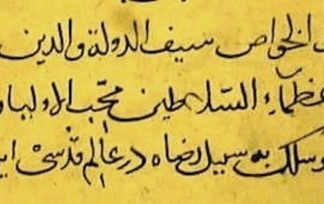 الخواص سيف الدولة والدين
عظماء السلاطين محب الاوليا
وسلك به سبيل رضاه در عالم قدسى